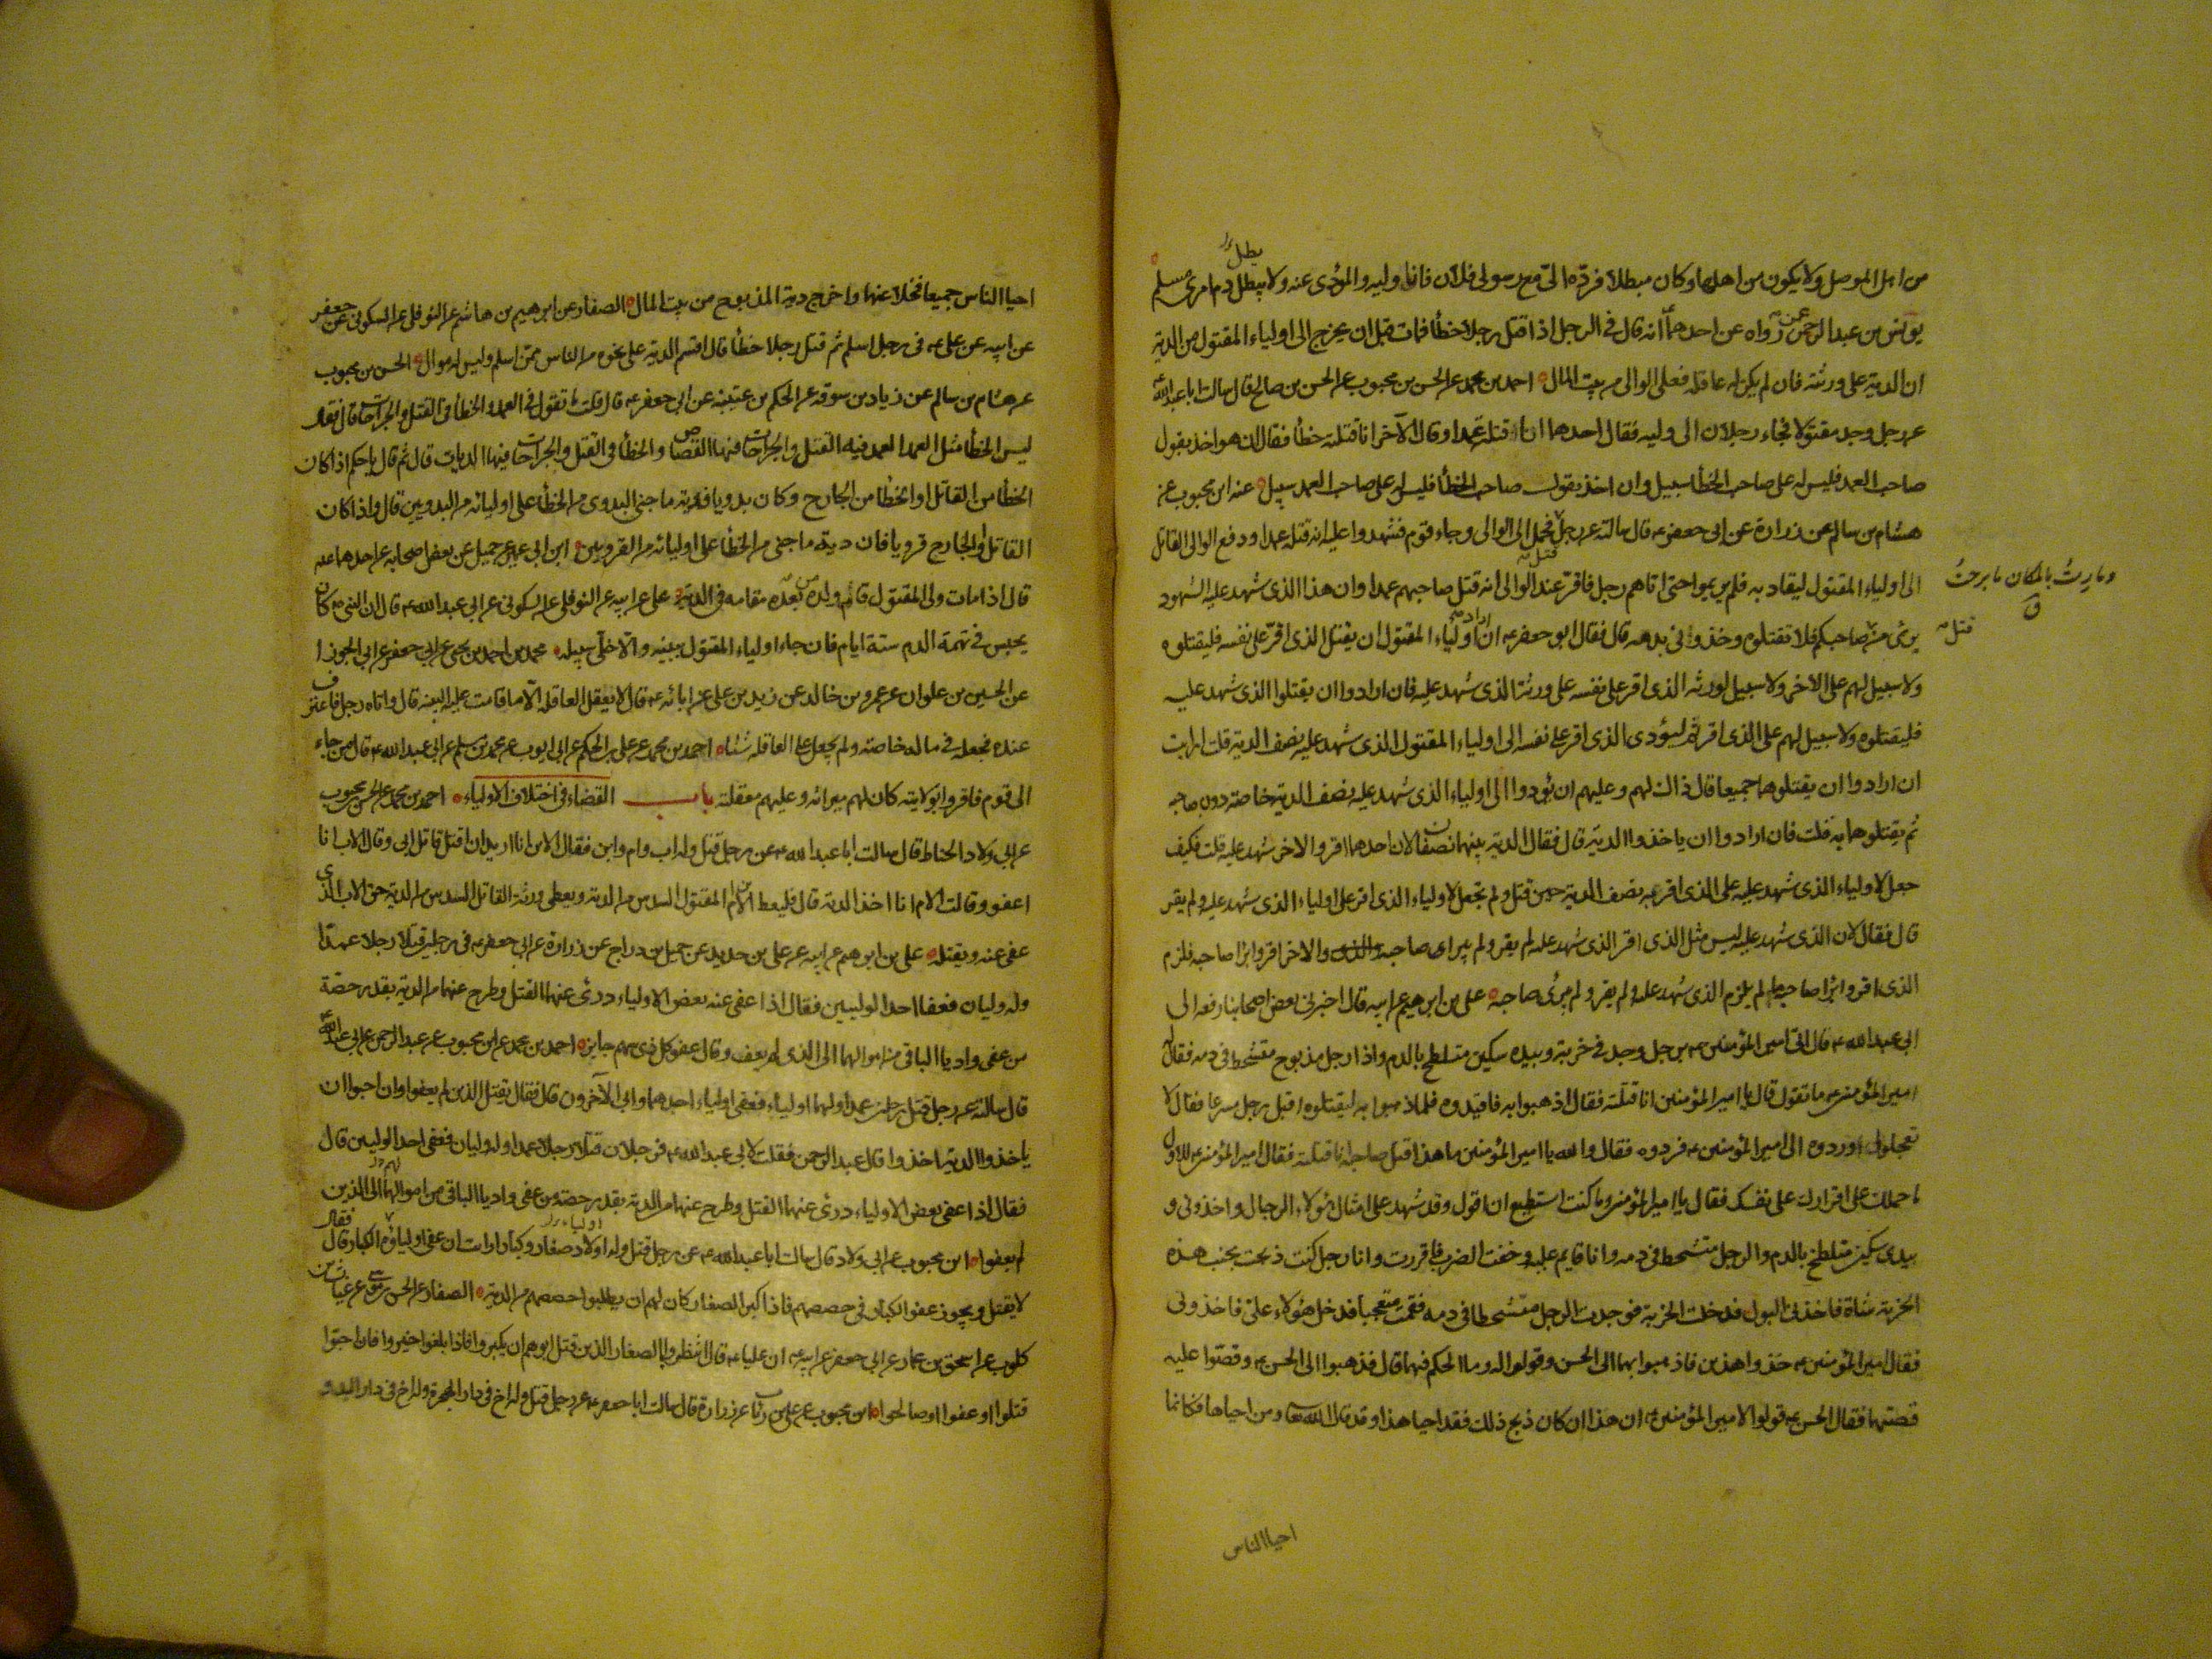 من اهل الموصل ولا يكون من اهلها وكان مبطلا فردّه الىّ مع رسولى فلان فانا وليه والمؤدى عنه ولا يبطل دم امرئ مسلم
يونس بن عبد الرحمن عن رواه عن احدهما انه قال فى الرجل اذا قتل رجلا خطأ فمات قبل ان يخرج الى اولياء المقتول من الدية
ان الدية على ورثته فان لم يكن له عاقلة فعلى الوالى من بيت المال احمد بن محمد عن الحسن بن محبوب عن الحسن بن صالح قال سالت ابا عبد الله
عن رجل وجد مقتولا فجاء رجلان الى وليه فقال احدهما انا قتلته عمدا وقال الآخر انا قتلته خطأ فقال ان هو اخذ بقول
صاحب العمد فليس له على صاحب الخطأ سبيل وان اخذ بقول صاحب الخطأ فليس له على صاحب العمد سبيل عنه ابن محبوب عن
هشام بن سالم عن زرارة عن ابى جعفر ع قال سالته عن رجل قتل فحمل الى الوالى وجاء قوم فشهدوا عليه انه قتله عمدا ودفع الوالى القاتل
الى اولياء المقتول ليقاد به فلم يريموا حتى اتاهم رجل فاقرّ عند الوالى انه قتل صاحبهم عمدا وان هذا الذى شهد عليه الشهود
وما رِمتُ بالمكان ما برحت
ق
برئ من قتل صاحبكم فلا تقتلوه وخذونى بدمه قال فقال ابو جعفر ع ان اراد اولياء المقتول ان يقتل الذى اقرّ على نفسه فليقتلوه
ولا سبيل لهم على الاخر ولا سبيل لورثه الذى اقر على نفسه على ورثة الذى شهد عليه فان ارادوا ان يقتلوا الذى شهد عليه
فليقتلوه ولا سبيل لهم على الذى اقر ثم ليؤدى الذى اقر على نفسه الى اولياء المقتول الذى شهد عليه نصف الدية قلت ارايت
ان ارادوا ان يقتلوهما جميعا قال ذاك لهم وعليهم ان يؤدوا الى اولياء الذى شهد عليه نصف الدية خاصة دون صاحبه
ثم يقتلوهما به قلت فان ارادوا ان ياخذوا الدية قال فقال الدية بينهما نصفان لان احدهما اقر والاخر شهد عليه قلت فكيف
جعل لاولياء الذى شهد عليه على الذى اقر به نصف الدية حين قتل ولم تجعل لاولياء الذى اقر على اولياء الذى شهد عليه ولم يقر
قال فقال لان الذى شهد عليه ليس مثل الذى اقر الذى شهد عليه لم يقر ولم يبراى صاحبه والاخر اقر وابرا صاحبه فلزم
الذى اقر وابرا صاحبه ما لم يلزم الذى شهد عليه ولم يقر ولم يبرئ صاحبه على بن ابرهيم عن ابيه قال اخبرنى بعض اصحابنا رفعه الى
ابى عبد الله ع قال اتى امير المؤمنين ع برجل وجد فى خربة وبيده سكين متلطخ بالدم واذا رجل مذبوح متشحط فى دمه فقال له
امير المؤمنين ع ما تقول قال يا امير المؤمنين انا قتلته فقال اذهبوا به فاقيدوه فلما ذهبوا به ليقتلوه اقبل رجل مسرعا فقال لا
تعجلوا وردوه الى امير المؤمنين ع فردوه فقال والله يا امير المؤمنين ما هذا قتل صاحبه انا قتلته فقال امير المؤمنين ع للاول
ما حملك على اقرارك على نفسك فقال يا امير المؤمنين وما كنت استطيع ان اقول وقد شهد على امثال هؤلاء الرجال واخذونى و
بيدى سكين متلطخ بالدم والرجل متشحط فى دمه وانا قايم عليه وخفت الضرب فاقررت وانا رجل كنت ذبحت بجنب هذه
الخربة شاة فاخذنى البول فدخلت الخربة فوجدت الرجل متشحطا فى دمه فقمت متعجبا فدخل هؤلاء علىّ فاخذونى
فقال امير المؤمنين ع خذوا هذين فاذهبوا بهما الى الحسن وقولوا له وما الحكم فيهما قال فذهبوا الى الحسن ع وقصّوا عليه
قصتهما فقال الحسن ع قولوا لامير المؤمنين ع ان هذا ان كان ذبح ذلك فقد احيا هذا وقد قال الله تعا ومن احياها فكانما
احيا الناس
احيا الناس جميعا فخلا عنهما واخرج دية المذبوح من بيت المال الصفار عن ابرهيم بن هاشم عن النوفلى عن السكونى عن جعفر
عن ابيه عن على ع فى رجل اسلم ثم قتل رجلا خطأ قال اقسم الدية على نحوه من الناس ممّن اسلم وليس له موال الحسن بن محبوب
عن هشام بن سالم عن زياد بن سوقه عن الحكم بن عتيبه عن ابى جعفر ع قال قلت ما تقول فى العمد والخطأ فى القتل والجراحات قال فقال
ليس الخطأ مثل العمد العمد فيه القتل والجراحات فيها القصاص والخطأ فى القتل والجراحات فيها الديات قال ثم قال يا حكم اذا كان
الخطأ من القاتل او الخطأ من الجارح وكان بدويا فدية ما جنى البدوى من الخطأ على اوليائه من البدويين قال واذا كان
القاتل او الجارح قرويا فان دية ما جنى من الخطأ على اوليائه من القرويين ابن ابى عمير عن جميل عن بعض اصحابه عن احدهما ع
قال اذا مات ولى المقتول قام ولده من بعده مقامه فى الدية على عن ابيه عن النوفلى عن السكونى عن ابى عبد الله ع قال ان النبى ص كان
يحبس فى تهمة الدم ستة ايام فان جاء اولياء المقتول ببينه والّا خلّى سبيله محمد بن احمد بن يحيى عن ابى جعفر عن ابى الجوزا
عن الحسين بن علوان عن عمرو بن خالد عن زيد بن على عن ابائه ع قال لا يعقل العاقلة الّا ما قامت عليه البينه قال واتاه رجل فاعترف
عنده فجعله فى ماله خاصة ولم يجعل على العاقله شئا احمد بن محمد عن على بن الحكم عن ابى ايوب عن محمد بن مسلم عن ابى عبد الله ع قال من جاء
الى قوم فاقر وابولايته كان لهم ميراثه وعليهم معقلته باب القضاء فى اختلاف الاولياء احمد بن محمد عن الحسن بن محبوب
عن ابى ولاد الحناط قال سالت ابا عبد الله ع عن رجل قتل وله اب وام وابن فقال الابن انا اريد ان اقتل قاتل ابى وقال الاب انا
اعفو وقالت الام انا اخذ الدية قال فليعط الابن لام المقتول السدس من الدية ويعطى ورثة القاتل السدس من الدية حق الاب الذى
عفى عنه ويقتله على بن ابرهيم عن ابيه عن على بن حديد عن جميل بن دراج عن زرارة عن ابى جعفر ع فى رجلين قتلا رجلا عمدا
وله وليان فعفا احد الوليين فقال اذا عفى عنه بعض الاولياء درئ عنهما القتل وطرح عنهما من الدية بقدر حصّة
من عفى واديا الباقى من اموالهما الى الذى لم يعف وقال عفو كل ذى سهم جايز احمد بن محمد عن ابن محبوب عن عبد الرحمن عن ابى عبد الله
قال سالته عن رجل قتل رجلين عمدا ولهما اولياء فعفى اولياء احدهما وابى الآخرون قال فقال يقتل الذين لم يعفوا وان احبوا ان
ياخذوا الدية اخذوا قال عبد الرحمن فقلت لابى عبد الله ع فرجلان قتلا رجلا عمدا وله وليان فعفى احد الوليين قال
فقال اذا عفى بعض الاولياء درئ عنهما القتل وطرح عنهما من الدية بقدر حصة من عفى واديا الباقى من اموالهما الى الذين
لم يعفوا ابن محبوب عن ابى ولاد قال سالت ابا عبد الله ع عن رجل قتل وله اولاد صغار وكبار ارايت ان عفى اولياؤه الكبار قال فقال
لا يقتل ويجوز عفو الكبار فى حصصهم فاذا كبر الصغار كان لهم ان يطلبوا حصصهم من الدية الصفار عن الحسن بن موسى عن غياث بن
كلوب عن اسحق بن عمار عن ابى جعفر عن ابيه ع ان عليا ع قال انتظروا بالصغار الذين قتل ابوهم ان يكبروا فاذا بلغوا خيروا فان احبّوا
قتلوا او عفوا او صالحوا ابن محبوب عن على بن رئاب عن زرارة قال سالت ابا جعفر ع عن رجل قتل وله اخ فى دار الهجرة وله اخ فى دار البدو